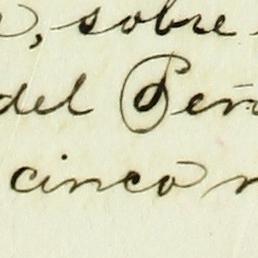 , sobre
del Peñ
cinco